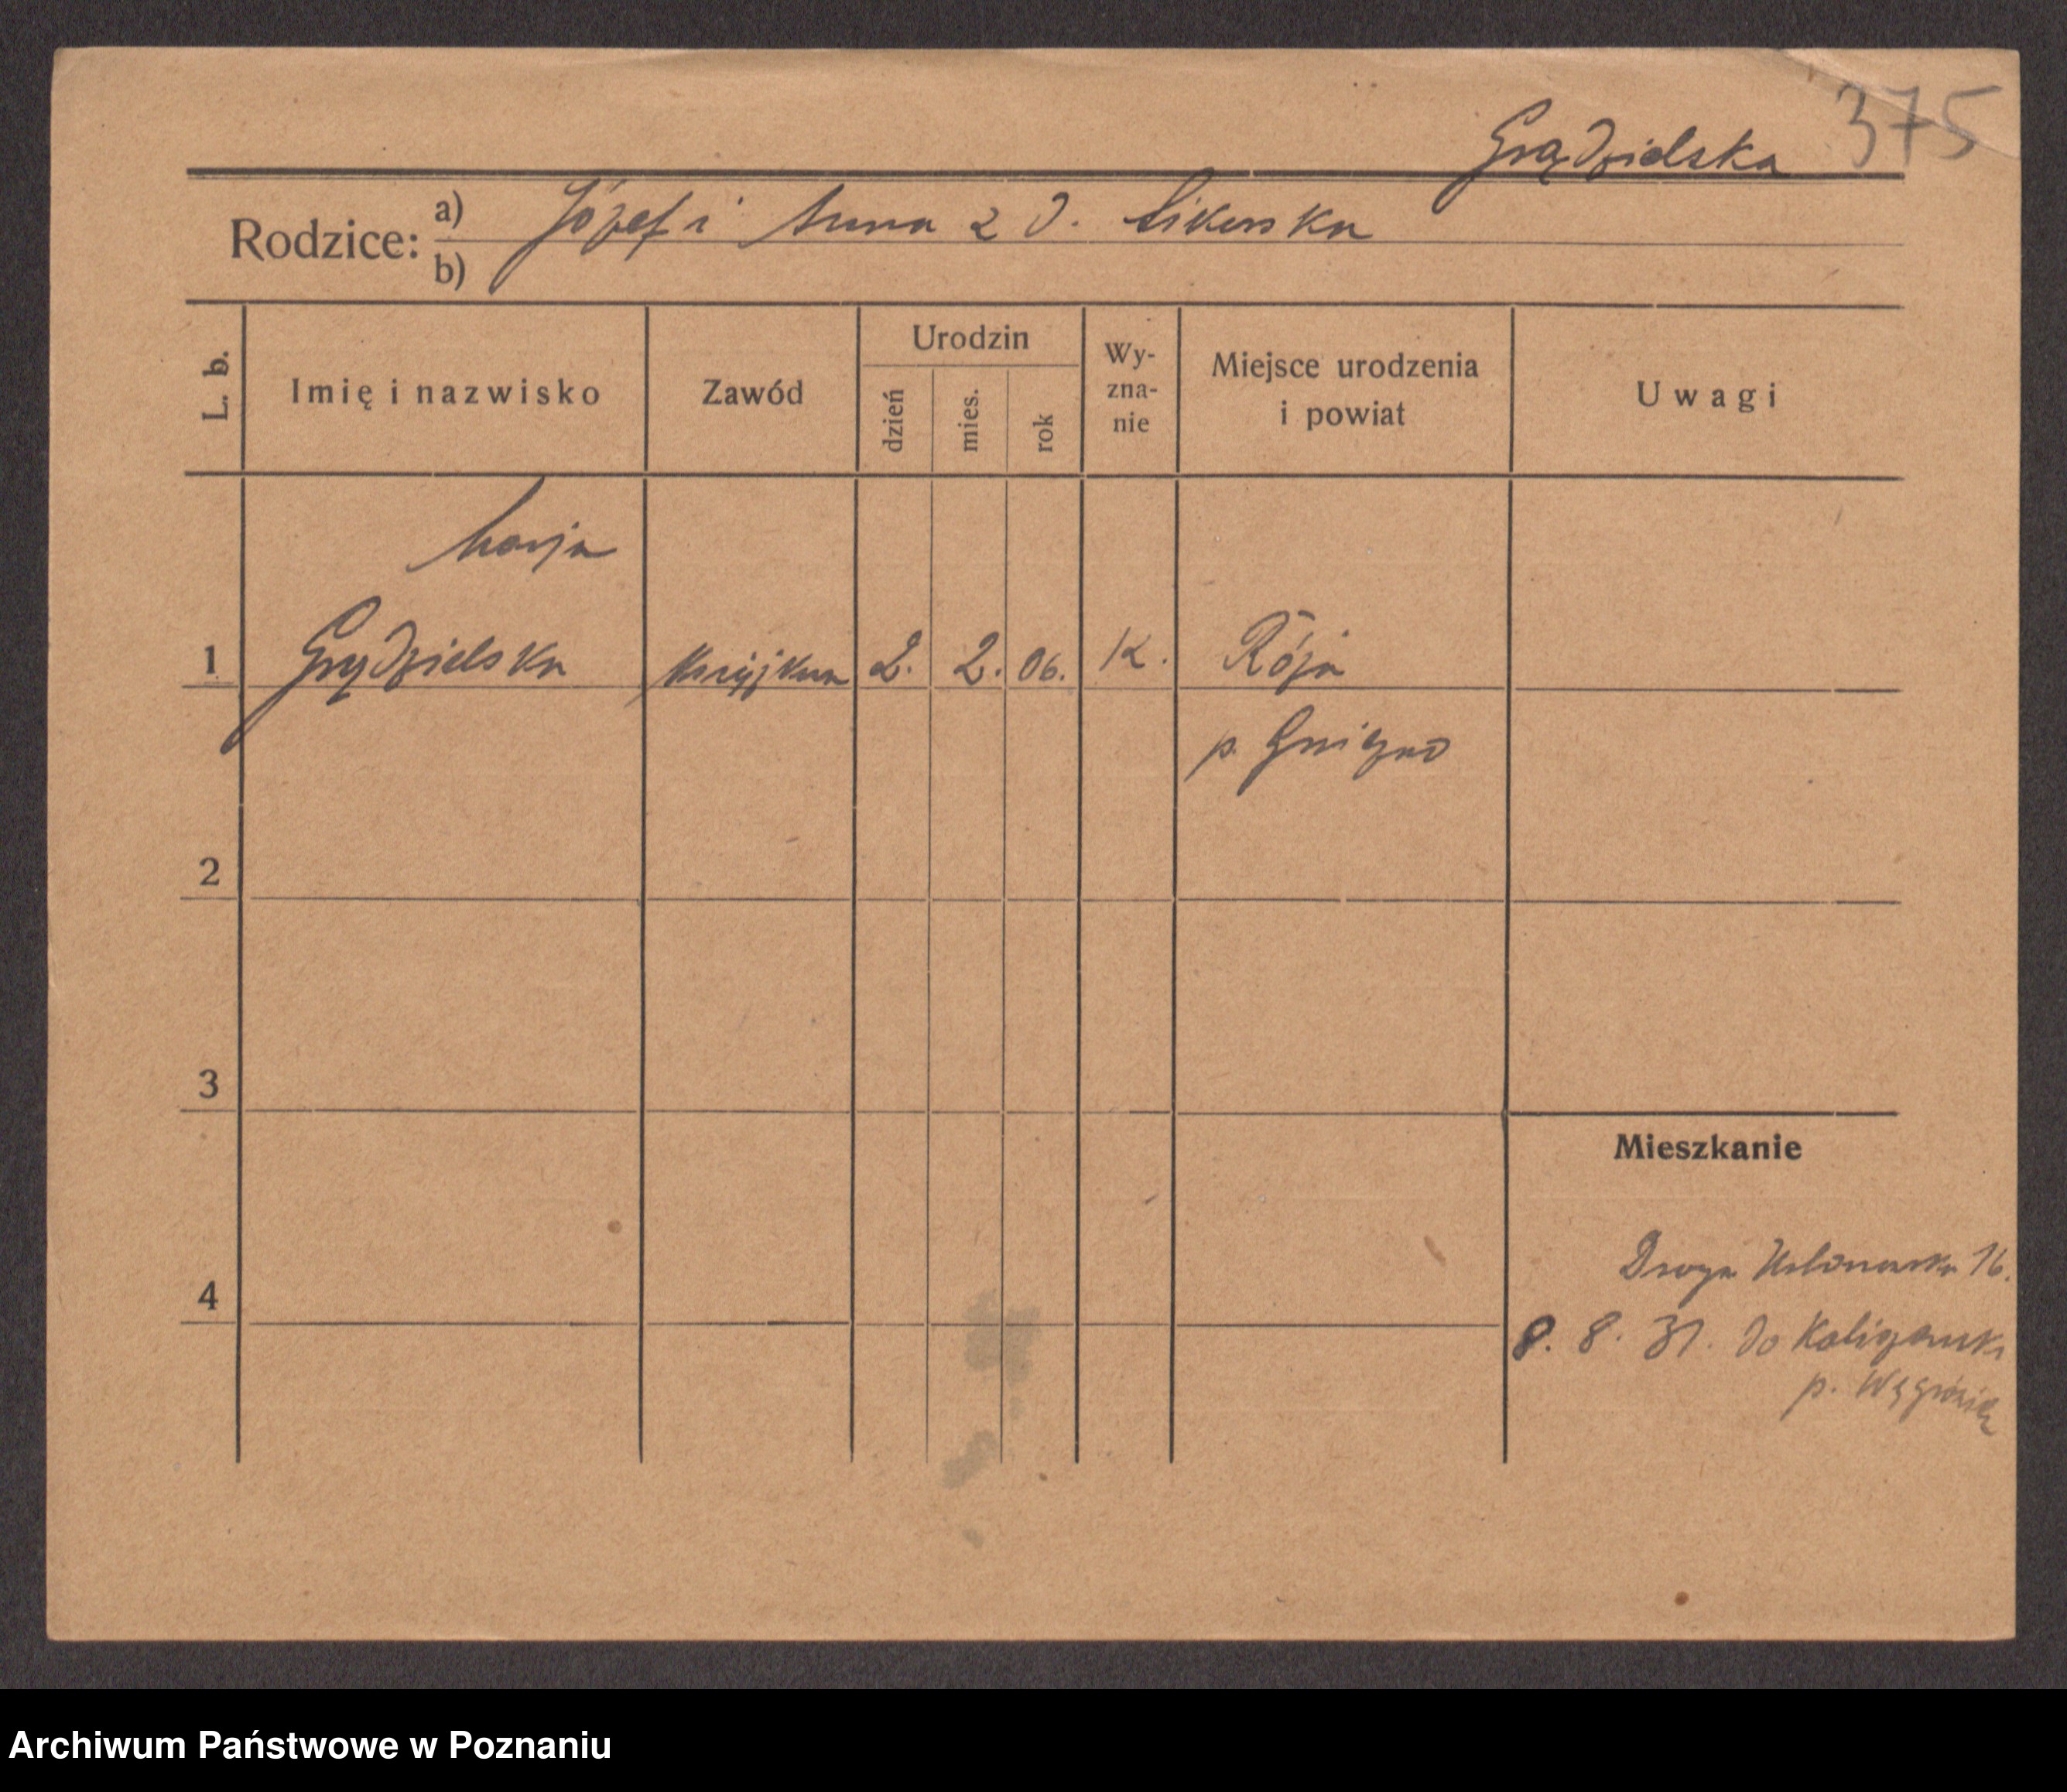 375
Grądzielska
Rodzice: a) Józef i Anna z d. Sikorska
b)
L. b.
Imię i nazwisko
Zawód
Urodzin
dzień
mies.
rok
Wy-
zna-
nie
Miejsce urodzenia
i powiat
Uwagi
Marja
1 Grądzielska 2. 2. 06. K. Róża
p. Gniezno
2
3
Mieszkanie
Droga 16.
4
8. 8. 31. do Kaliszanki
p. Wągrówiec
Archiwum Państwowe w Poznaniu